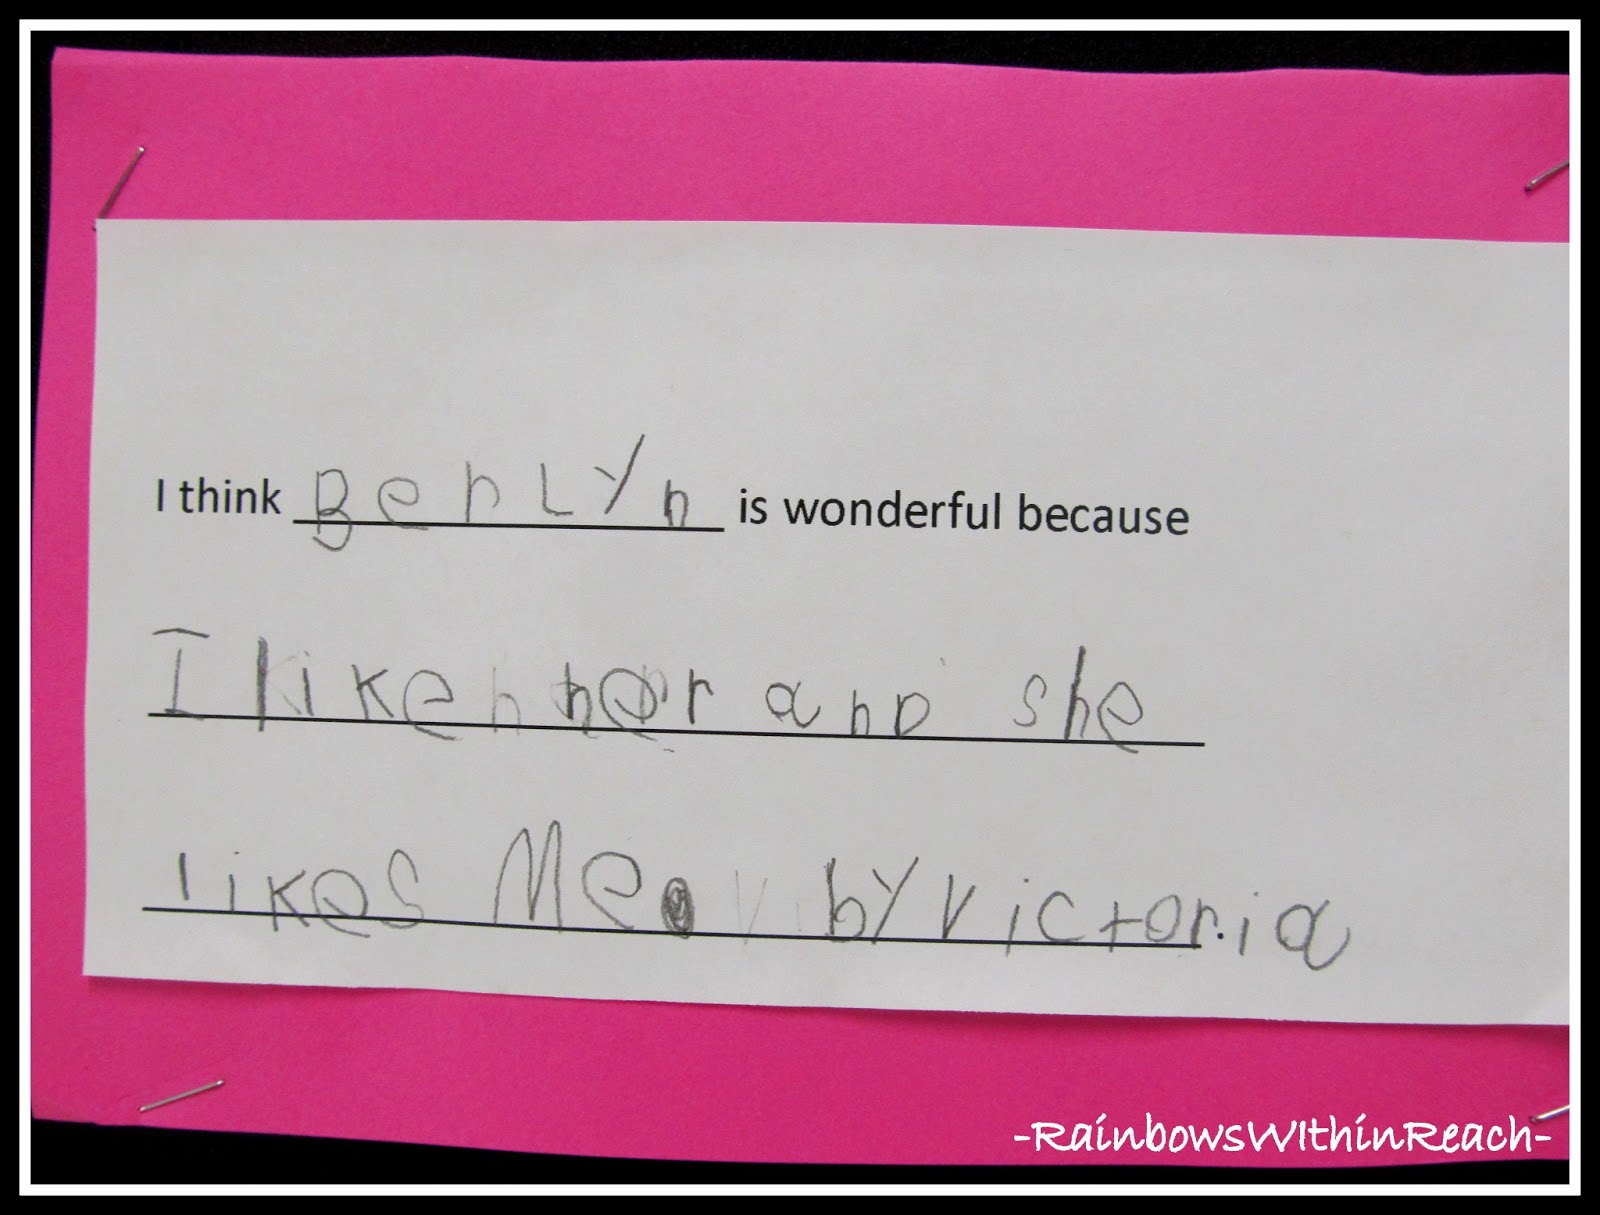 I think BenLyn is wonderful because
I like her and she
likes Me by Victoria
-RainbowsWIthinReach-